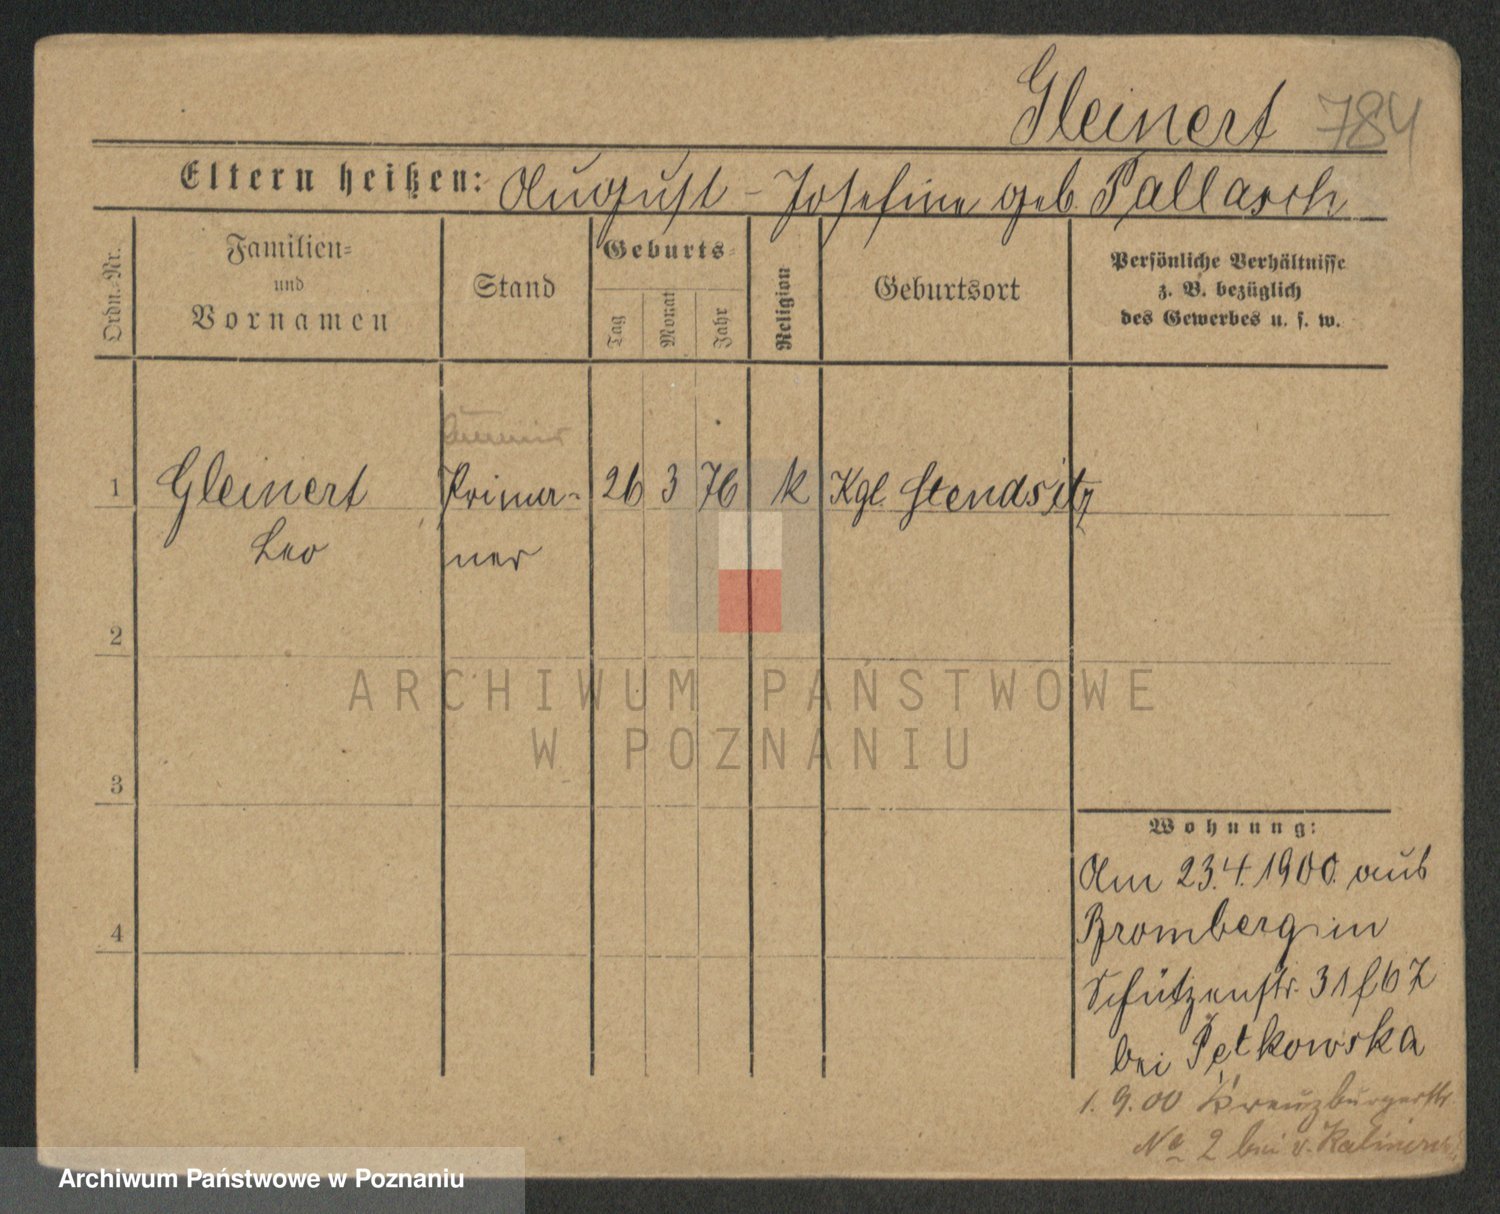 Gleinert 784
Eltern heißen: August - Josefine geb. Pallasch
Ordn.-Nr.
Familien-
und
Vornamen
Stand
Geburts-
Tag
Monat
Jahr
Religion
Geburtsort
Persönliche Verhältnisse
z. B. bezüglich
des Gewerbes u. s. w.
1 Gleinert Primar- 26 3 76 k Kgl. Stendsitz
Leo ner
2
ARCHIWUM PAŃSTWOWE
W POZNANIU
3
Wohnung:
Am 23.4.1900. aus
4 Bromberg in
Schützenstr. 31
bei Petkowska
1. 9. 00 Kreuzburgerstr.
No 2 bei v.
Archiwum Państwowe w Poznaniu